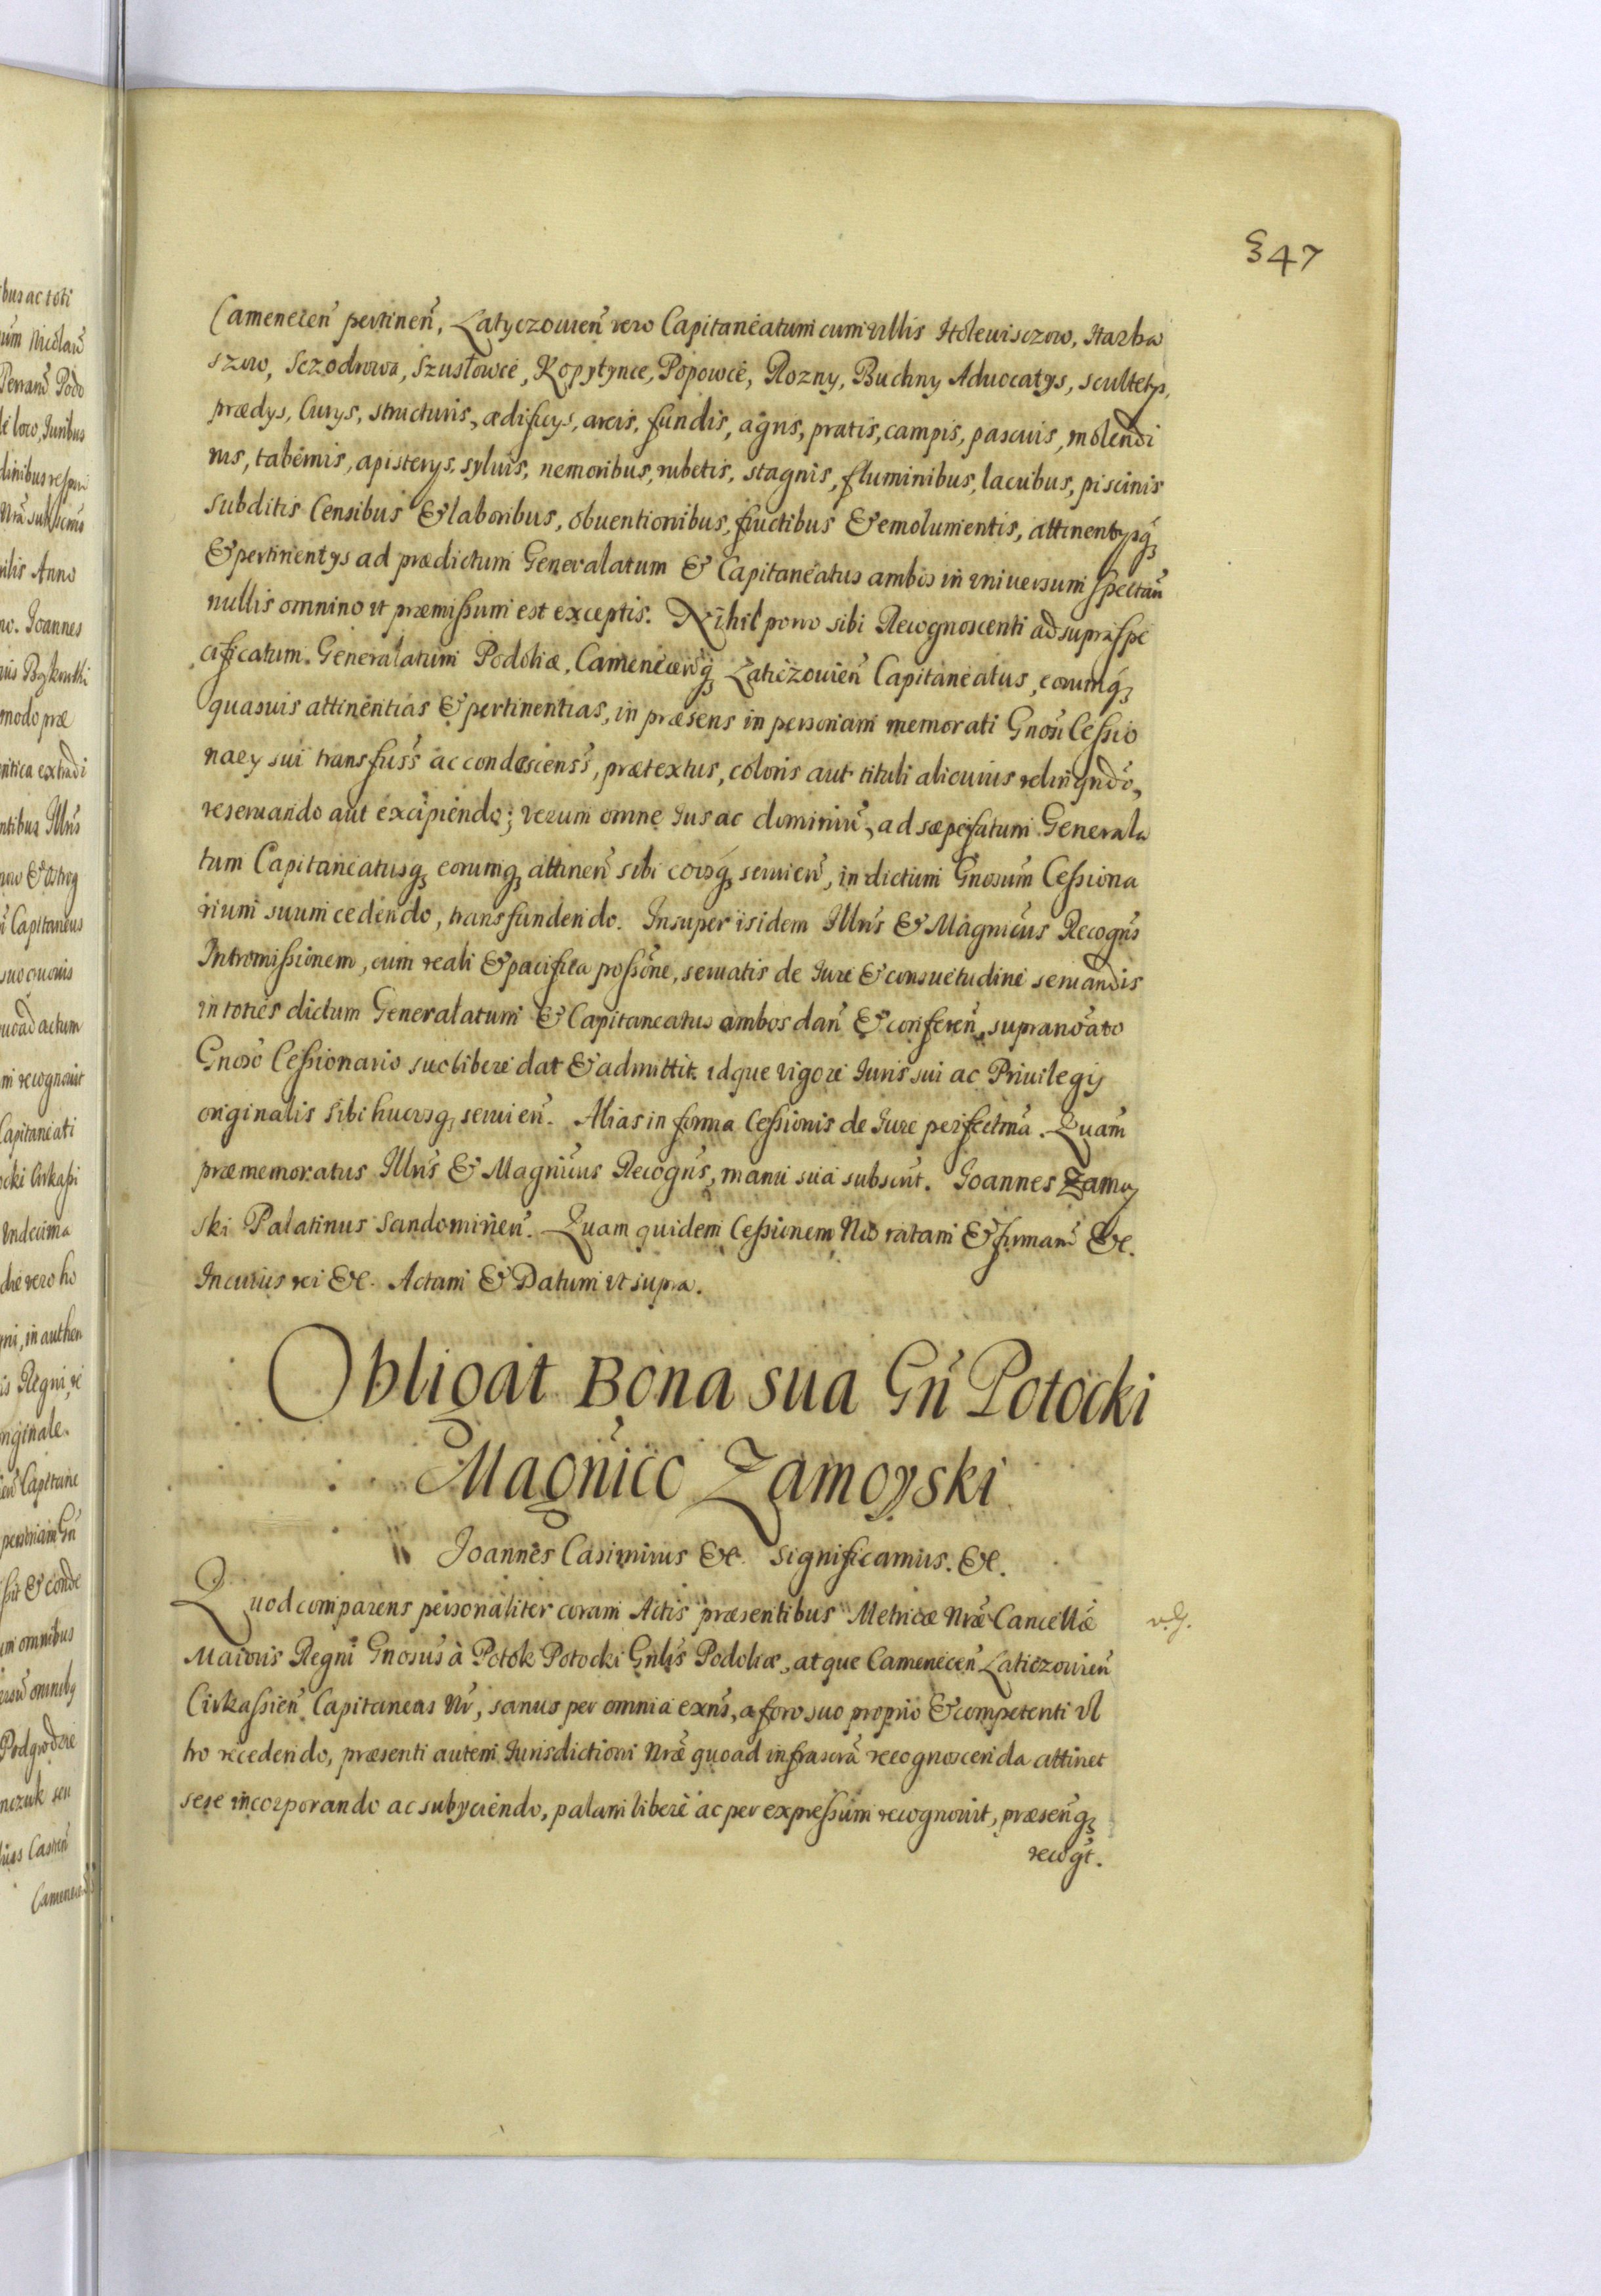 347
Camenecen̄ pertinen̄, Latyczouien̄ vero Capitaneatum cum villis Holewisczow, Harba
szow, Sczodrowa, Szusłowce, Kopytynce, Popowce, Rozny, Buchny Aduocatys, scultetys,
prædys, Curys, structuris, ædificys, areis, fundis, agris, pratis, campis, pascuis, molendi
nis, tabernis, apisterys, syluis, nemoribus, rubetis, stagnis, fluminibus, lacubus, piscinis
subditis Censibus & laboribus, obuentionibus, fructibus & emolumentis, attinentysq́
& pertinentys ad prædictum Generalatum & Capitaneatus ambos in vniuersum spectan̄
nullis omnino vt præmissum est exceptis. Nihil porro sibi Recognoscenti ad supraspe
cificatum Generalatum Podoliæ, Camenecen̄q́ Laticzouien̄ Capitaneatus, eorumq́
quasuis attinentias & pertinentias, in præsens in personam memorati Gnōsi Cessio
naey sui transfuss̄ ac condescenss̄, prætextus, coloris aut tituli alicuius relinqndō,
reseruando aut excipiendo; verum omne Jus ac dominiū, ad sæpefatum Generala
tum Capitaneatusq́ eorumq́ attinen̄ sibi eousq́ seruien̄, in dictum Gnosum Cessiona
rium suum cedendo, transfundendo. Insuper isidem Illr̄s & Magnicus Recogn̄s
Intromissionem, cum reali & pacifica possōne, seruatis de Jure & consuetudine seruandis
in toties dictum Generalatum & Capitaneatus ambos dan̄ & conferen̄, supranōato
Gnoso Cessionario suo libere dat & admittit. idque vigore Juris sui ac Priuilegy
originalis sibi hucusq́ seruien̄. Alias in forma Cessionis de Jure perfectm̄a. Quam
præmemoratus Illr̄s & Magnicus Recogn̄s, manu sua subscr̄t. Joannes Zamoy
ski Palatinus Sandomirien̄. Quam quidem Cessionem Nos ratam & firmam &c.
In cuius rei &c. Actam & Datum vt supra.
Obligat Bona sua Gn̄ Potocki
Magn̄ico Zamoyski
Joannes Casimirus &c. Significamus. &c.
Quod comparens personaliter coram Actis præsentibus Metricæ Nræ Cancellæ
Maioris Regni Gnosus à Potok Potocki Gnlis Podoliæ, atque Camenecen̄ Laticzouien̄
Cirkassien̄ Capitaneus Nr, sanus per omnia exn̄s, a foro suo proprio & competenti vl
tro recedendo, præsenti autem Jurisdictioni Nræ quoad infrascr̄a recognoscenda attinet
sese incorporando ac subyciendo, palam libere ac per expressum recognouit, præsenq́
recogt.